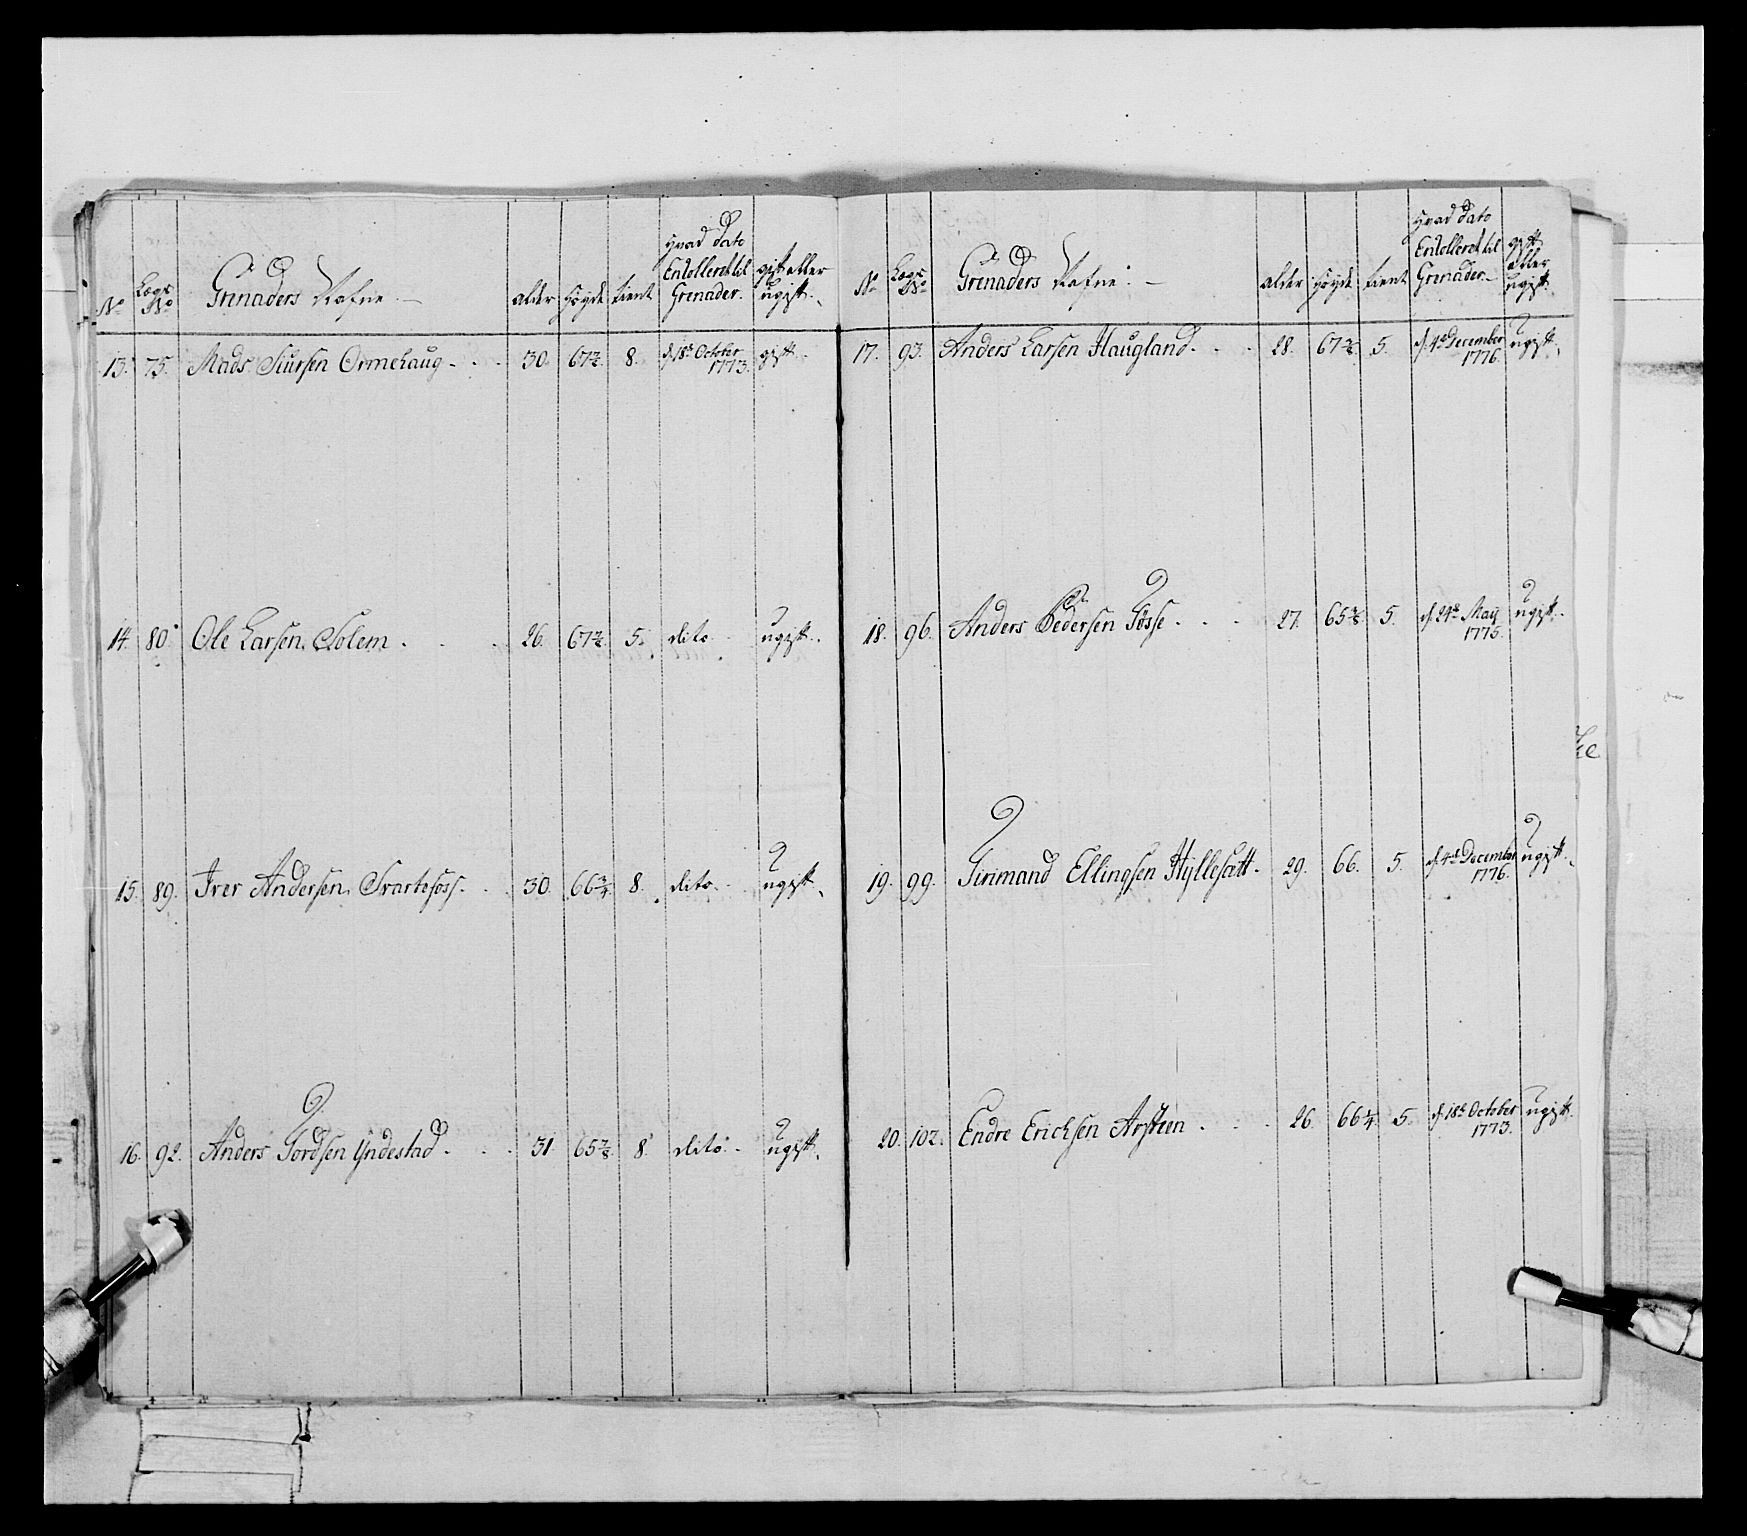 No Lægs No Grenaders Nafne. alder høyde tient Hvad Dato Enrolleret til Grenader. gift eller ugift.
13. 75. Mads Siursen Ormehaug 30. 67 8. d 18de October 1773. gift.
14. 80. Ole Larsen Solem 26. 67 5. dito ugift.
15. 89. Iver Andersen Svartefos 30. 66 8. dito ugift.
16. 92. Anders Tordsen Yndestad 31. 65 8. dito ugift.
No Lægs No Grenaders Nafne. alder høyde tient Hvad Dato Enrolleret til Grenader. gift eller ugift.
17. 93. Anders Larsen Haugland 28. 67 5. d. 4de December 1776. ugift.
18. 96. Anders Pedersen Tøsse 27. 65 5. d. 24de May 1775. ugift.
19. 99. Sirimand Ellingsen Hyllesætt 29. 66. 5. d. 4de December 1776. ugift.
20. 102. Endre Erichsen Arsteen 26. 66 1/4 5. d. 18de October 1773. ugift.